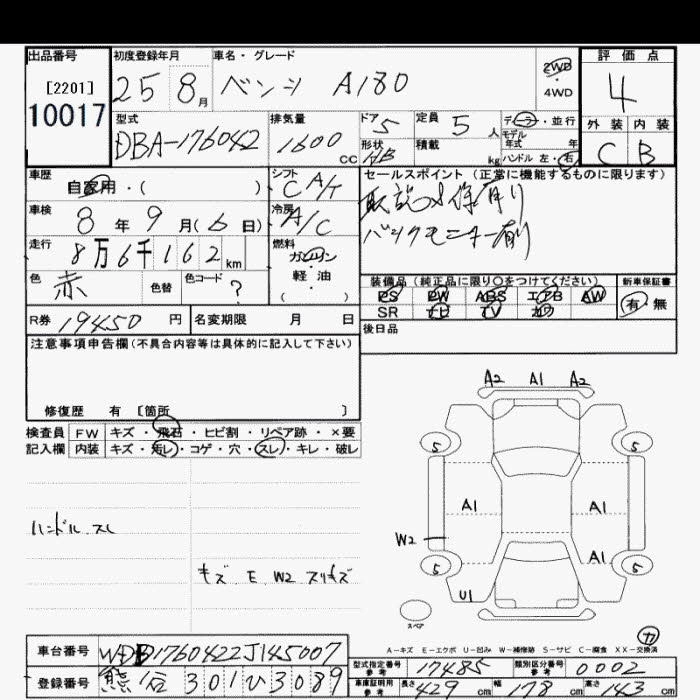 出品番号 初度登録年月 車名・グレード 2WD 評価点
[2201] 25 8月 ベンツ A180 4WD 4
10017 型式 排気量 ドア 定員 ディーラー・並行 外装 内装
DBA-176042 1600CC 5 5人 モデル年式 年 C B
形状 HB 積載 kg ハンドル 左・右
車歴 シフト セールスポイント(正常に機能するものに限ります)
自家用・( ) CA/T 取説 保有り
車検 冷房 バックモニター有
8年9月(6日) A/C
走行 8万6千162km 燃料 ガソリン
軽・油
( )
色 赤 色替 色コード ?
装備品(純正品に限り○をつけてください) 新車保証書
PS PW ABS エアB AW 有 無
SR ナビ TV カワ
R券 19450円 名変期限 月 日 後日品
注意事項申告欄(不具合内容等は具体的に記入して下さい)
修復歴 有 [箇所 ]
検査員 FW キズ・飛石・ヒビ割・リペア跡・×要
記入欄 内装 キズ・汚レ・コゲ・穴・スレ・キレ・破レ
ハンドル スレ
キズ E W2 スリキズ
A2 A1 A2
5 5
A1 A1
W2 A1
5 5
U1
スペア
A-キズ E-エクボ U-凹み W-補修跡 S-サビ C-腐食 XX-交換済
77
車台番号 WDD1760422J145007
型式指定番号 参考 17485 類別区分番号 参考 0002
登録番号 熊谷 301ひ3089
車庫証明用 参考 長さ 429cm 幅 178cm 高さ 143cm